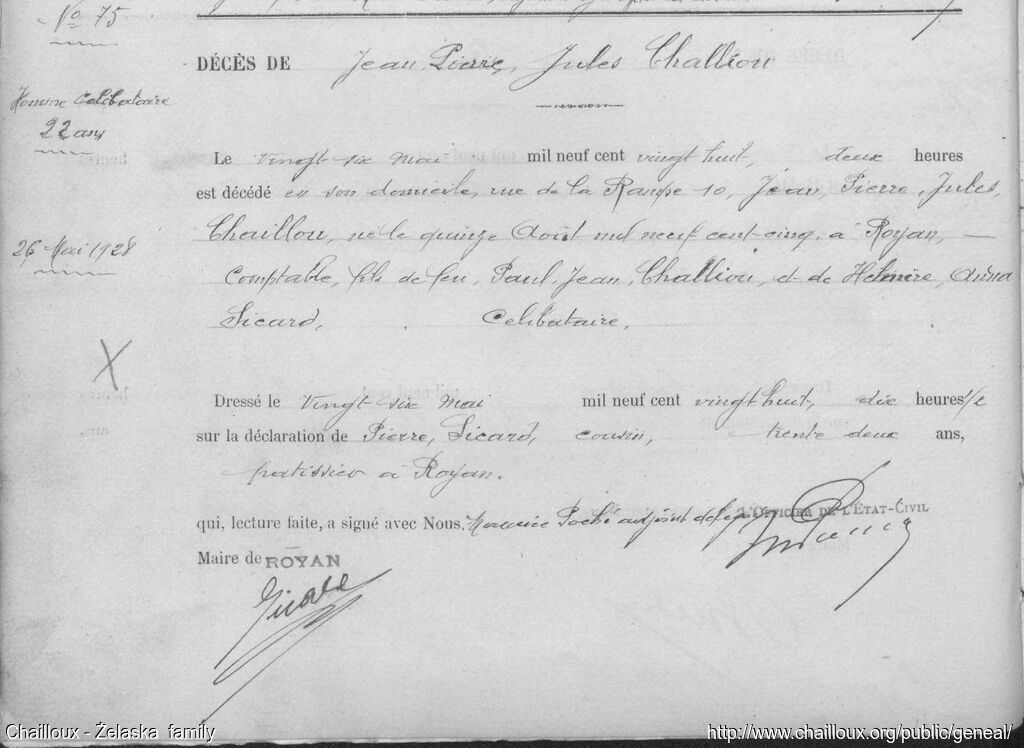 No 75
DÉCÈS DE Jean, Pierre, Jules Challiou
Homme Celibataire
22 ans
Le vingt-six mai mil neuf cent vingt huit, deux heures
est décédé en son domicile, rue de la Rampe 10, Jean, Pierre, Jules,
26 Mai 1928
Chaillou, né le quinze Août mil neuf cent cinq, à Royan, —
Comptable, fils de feu, Paul, Jean, Challiou, et de Helmire, Anna
Sicard, Celibataire,
X
Dressé le vingt-six mai mil neuf cent vingt huit, dix heures 1/2
sur la déclaration de Pierre, Sicard, cousin, trente deux ans,
patissier à Royan.
qui, lecture faite, a signé avec Nous, Maurice Poché adjoint délégué L'OFFICIER DE L'ÉTAT-CIVIL
Maire de ROYAN
Sicard
Chailloux - Želaska family
http://www.chailloux.org/public/geneal/